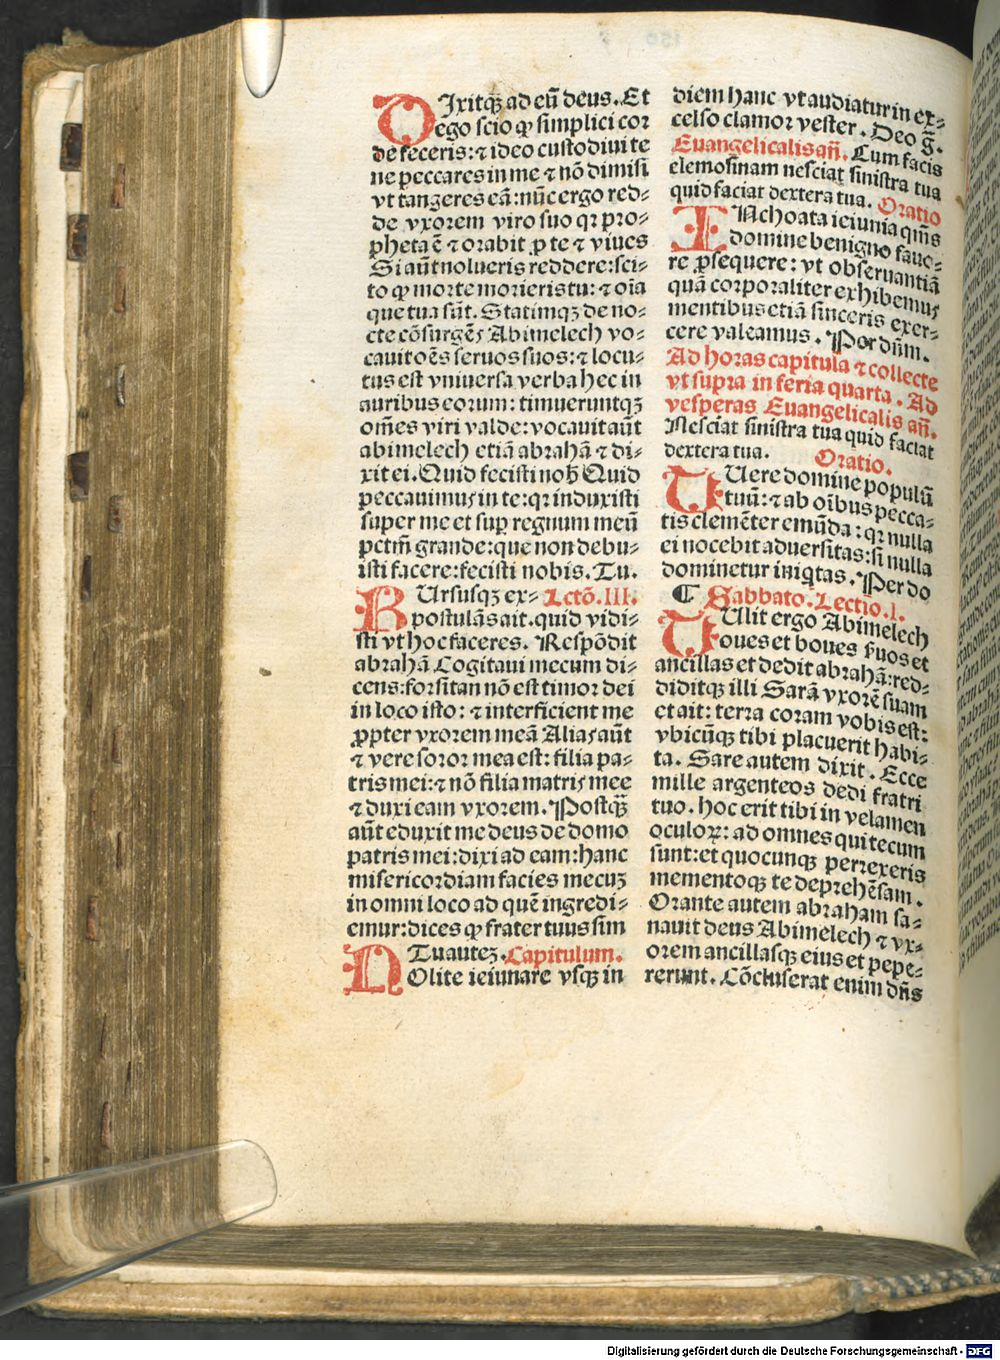 DJxitqꝫ ad eū deus. Et
ego scio ꝙ simplici cor
de feceris: ⁊ ideo custodiui te
ne peccares in me ⁊ nō dimisi
vt tangeres eā: nūc ergo red⸗
de vxorem viro suo qꝛ pro⸗
pheta ē ⁊ orabit ꝓ te ⁊ viues
Si aūt nolueris reddere: sci⸗
to ꝙ morte morieris tu: ⁊ oīa
que tua sūt. Statimqꝫ de no⸗
cte cōsurgēs Abimelech vo⸗
cauit oēs seruos suos: ⁊ locu⸗
tus est vniuersa verba hec in
auribus eorum: timueruntqꝫ
om̄es viri valde: vocauit aūt
abimelech etiā abrahā ⁊ di⸗
xit ei. Quid fecisti nob̄ Quid
peccauimus in te: qꝛ induxisti
super me et suꝑ regnum meū
pctm̄ grande: que non debu⸗
isti facere: fecisti nobis. Tu.
RUrsusqꝫ ex⸗ Lctō. III.
postulās ait. quid vidi⸗
sti vt hoc faceres. Respōdit
abrahā. Cogitaui mecum di⸗
cens: forsitan nō est timor dei
in loco isto: ⁊ interficient me
ꝓpter vxorem meā Alias aūt
⁊ vere soror mea est: filia pa⸗
tris mei: ⁊ nō filia matris mee
⁊ duxi eam vxorem. Postqꝫ̄
aūt eduxit me deus de domo
patris mei: dixi ad eam: hanc
misericordiam facies mecuꝫ
in omni loco ad quē ingredi⸗
emur: dices ꝙ frater tuus sim
Tu auteꝫ. Capitulum.
NOlite ieiunare vsqꝫ in
diem hanc vt audiatur in ex⸗
celso clamor vester. Deo ḡ.
Euangelicalis añ. Cum facis
elemosinam nesciat sinistra tua
quid faciat dextera tua. Oratio
INchoata ieiunia qm̄s
domine benigno fauo⸗
re ꝓsequere: vt obseruantiā
quā corporaliter exhibemus
mentibus etiā sinceris exer⸗
cere valeamus. Per dūm.
Ad horas capitula ⁊ collecte
vt supra in feria quarta. Ad
vesperas Euangelicalis añ.
Nesciat sinistra tua quid faciat
dextera tua. Oratio.
TUere domine populū
tuū: ⁊ ab oībus pecca⸗
tis clemēter emūda: qꝛ nulla
ei nocebit aduersitas: si nulla
dominetur iniqtas. Per do
¶ Sabbato. Lectio. I.
TUlit ergo Abimelech
oues et boues s̄uos et
ancillas et dedit abrahā: red⸗
diditqꝫ illi Sarā vxorē suam
et ait: terra coram vobis est:
vbicūqꝫ tibi placuerit habi⸗
ta. Sare autem dixit. Ecce
mille argenteos dedi fratri
tuo. hoc erit tibi in velamen
oculoꝝ: ad omnes qui tecum
sunt: et quocunqꝫ perrexeris
mementoqꝫ te deprehēsam.
Orante autem abraham sa⸗
nauit deus Abimelech ⁊ vx⸗
orem ancillasqꝫ eius et pepe⸗
rerunt. Cōcluserat enim dn̄s
Digitalisierung gefördert durch die Deutsche Forschungsgemeinschaft - DFG